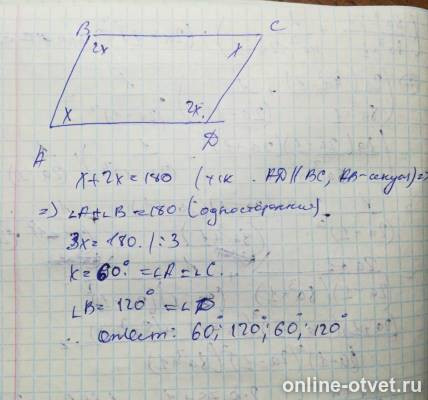 B C
2x x
x 2x
A D
x+2x=180 (т.к. AD||BC, AB-секущ) =>
=> ∠A+∠B=180. (односторонние)
3x=180. /:3
x=60° =∠A=∠C.
∠B=120° =∠D
Ответ: 60°; 120°; 60°; 120°
online-otvet.ru